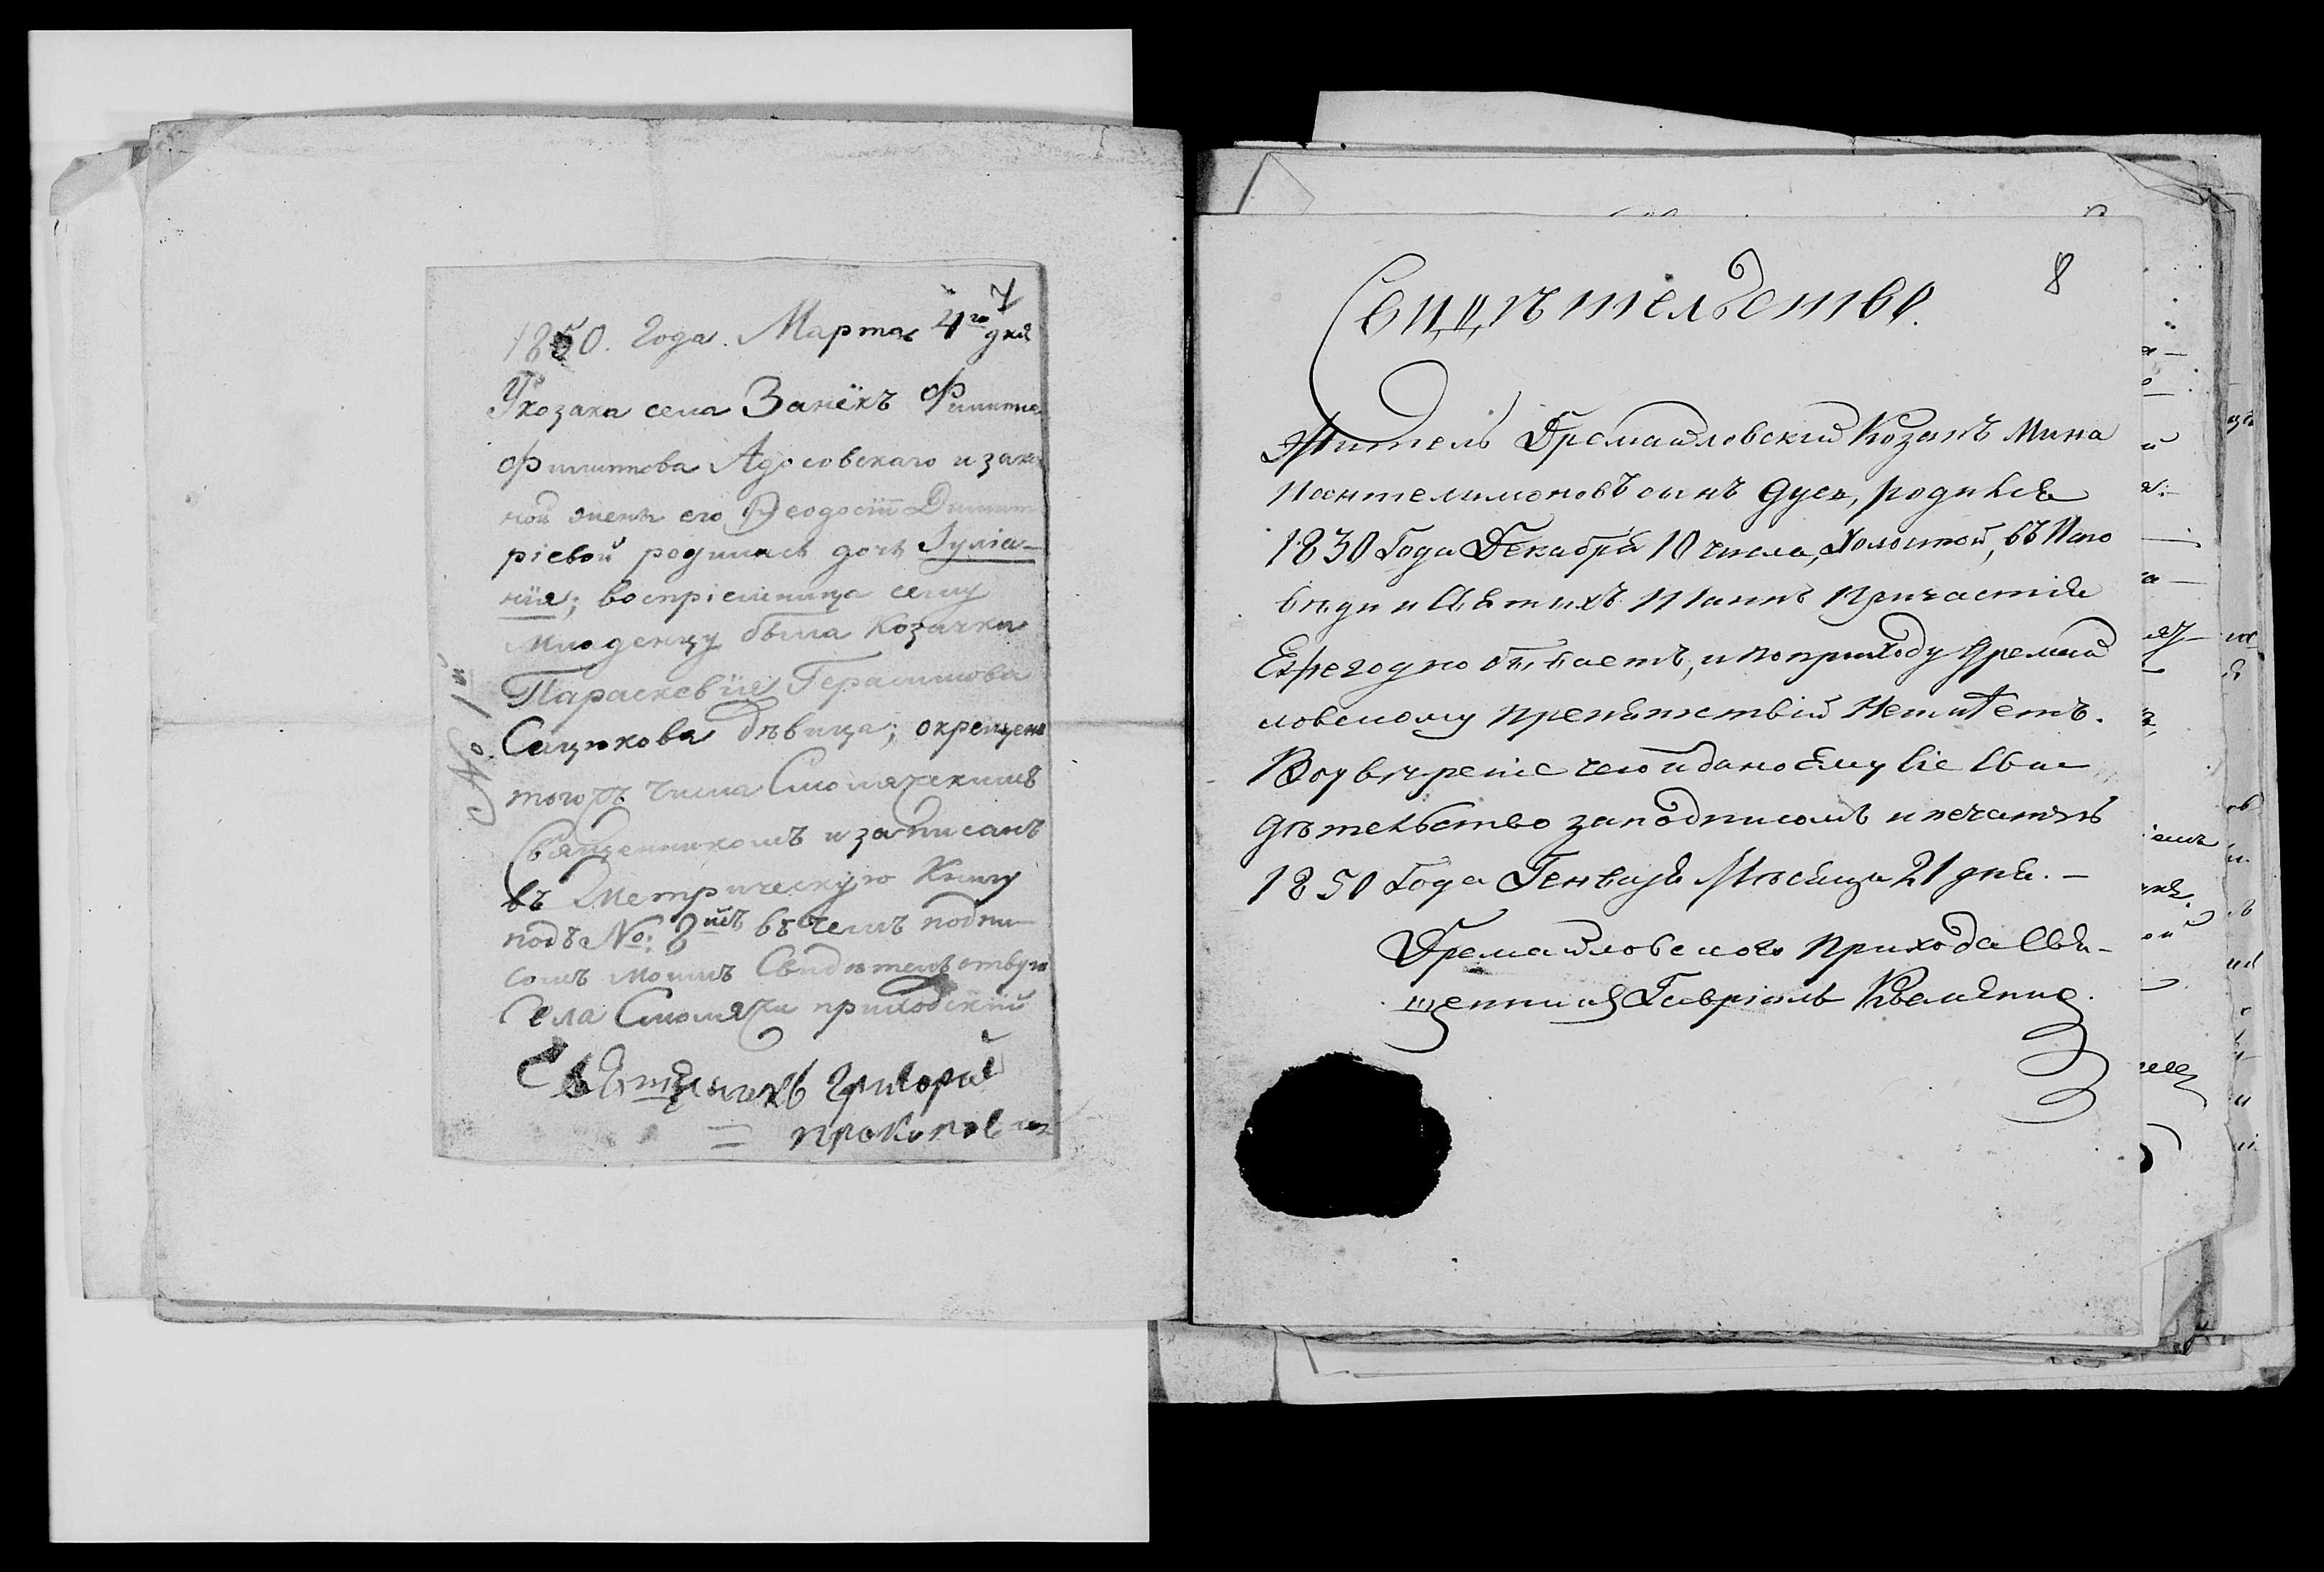 7
1850. Года. Марта 4го дня
У козака села Занёкъ Филиппа
Филиппова Адосовскаго и закон
ной жены его Ѳеодосіи Димит
ріевой родилась дочь Іуліа-
нія; воспріемница сему
младенцу была Козачка
Параскевія Герасимова
Сацукова дѣвица; окрещена
того жъ числа Смоляжскимъ
Священникомъ и записанъ
въ Метрическую Книгу
подъ No: 8мъ въ чемъ подпи-
сомъ моимъ Свидѣтельствую
Села Смоляжи приходскій
Священникъ Григорій
= Прокопович
No 1й
8
Свидѣтельство.
Житель Гремайловский Козакъ Мина
Пантелимоновъ сынъ Дуся, родился
1830 Года Декабря 10 числа, Холостой, въ Испо
вѣди и Святихъ Таинъ Причастія
Ежегодно бываетъ, и по приходу Гремай
ловскому препятствій Неимѣетъ.
Воувѣреніе чего и дано ему сіе Сви
дѣтельство заподписомъ и печатью
1850 Года Генваря Мѣсяца 21 дня. —
Гремайловского Прихода Свя-
щенник Гавріилъ